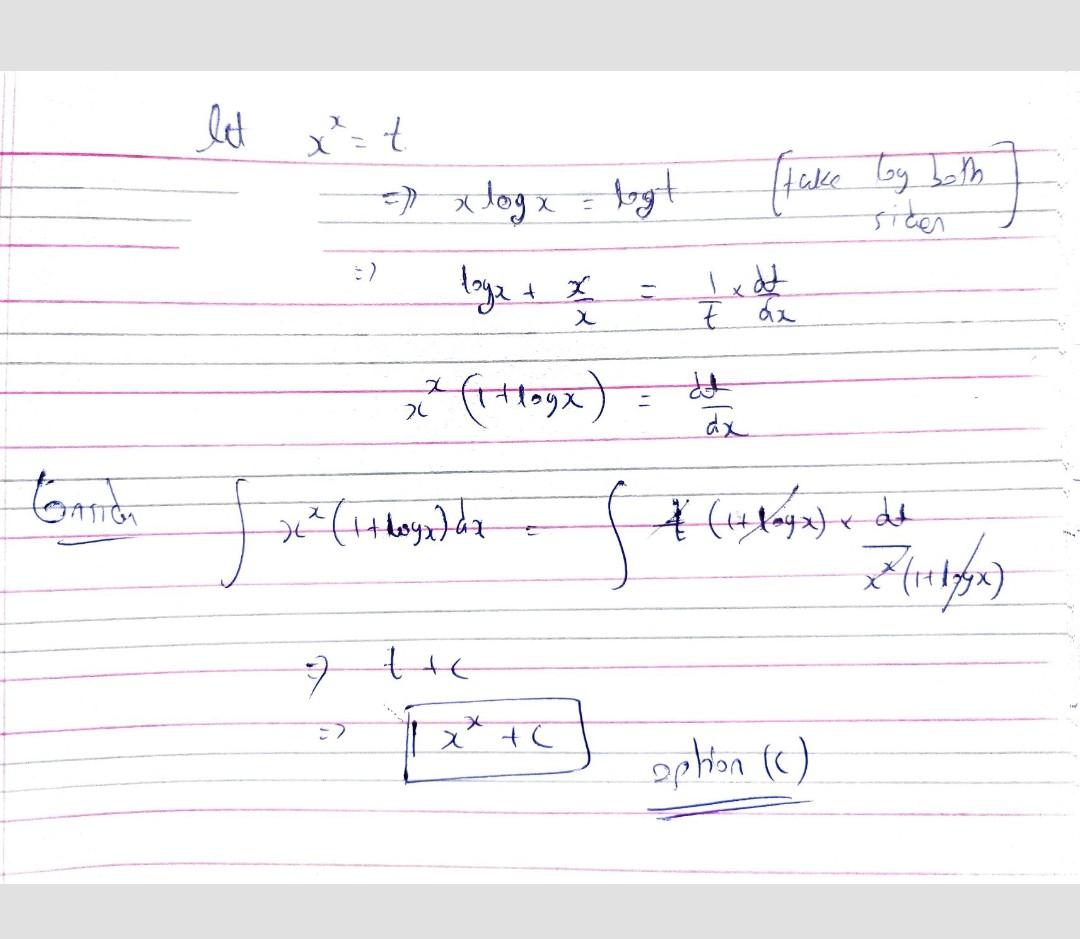 let x^x = t
=> x log x = log t [take log both
sides]
=> log x + x/x = 1/t × dt/dx
x^x (1 + log x) = dt/dx
Consider ∫ x^x (1 + log x) dx = ∫ t (1 + log x) × dt / x^x (1 + log x)
=> t + c
=> x^x + c
option (c)